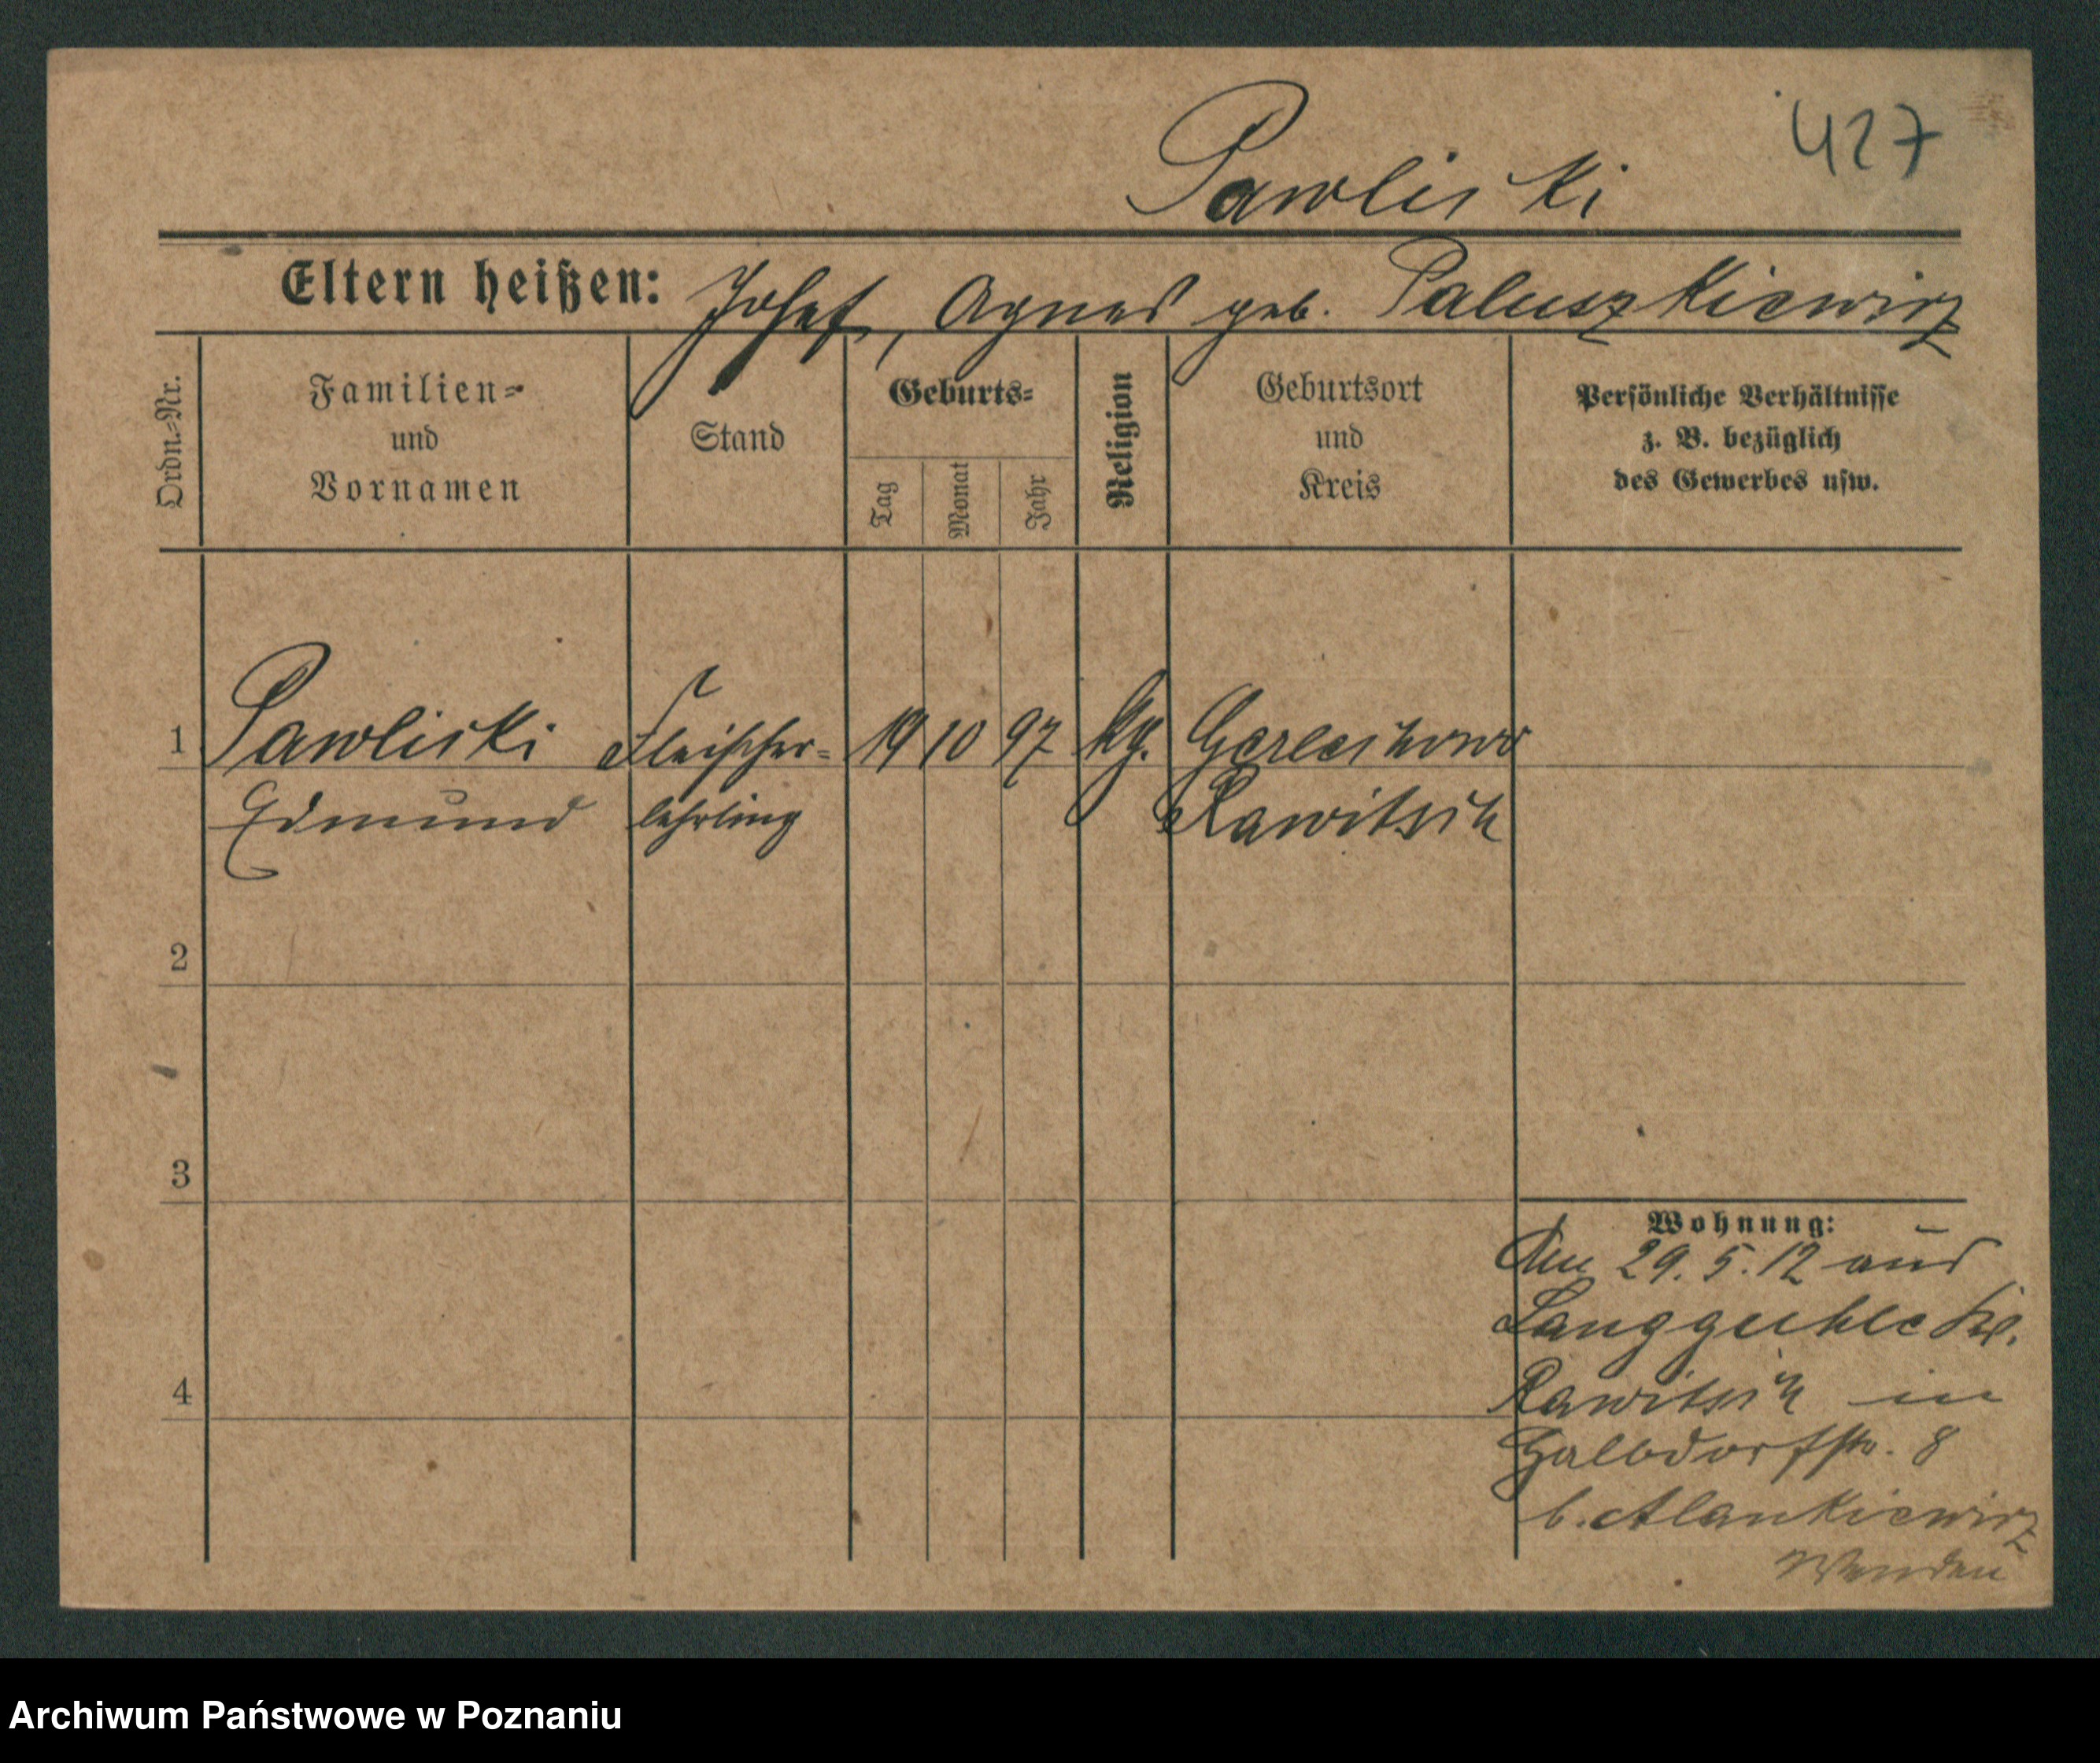 427
Pawliski
Eltern heißen: Josef, Agnes geb. Paluszkiewicz
Ordn.=Nr.
Familien=
und
Vornamen
Stand
Geburts=
Tag
Monat
Jahr
Religion
Geburtsort
und
Kreis
Persönliche Verhältnisse
z. B. bezüglich
des Gewerbes usw.
1 Pawliski Fleischer= 19 10 97
Edmund lehrling Rawitsch
2
3
4
Wohnung:
29.5.12 aus
Langguhle Kr.
Rawitsch in
Halbdorfstr. 8
b. 
Wenden
Archiwum Państwowe w Poznaniu